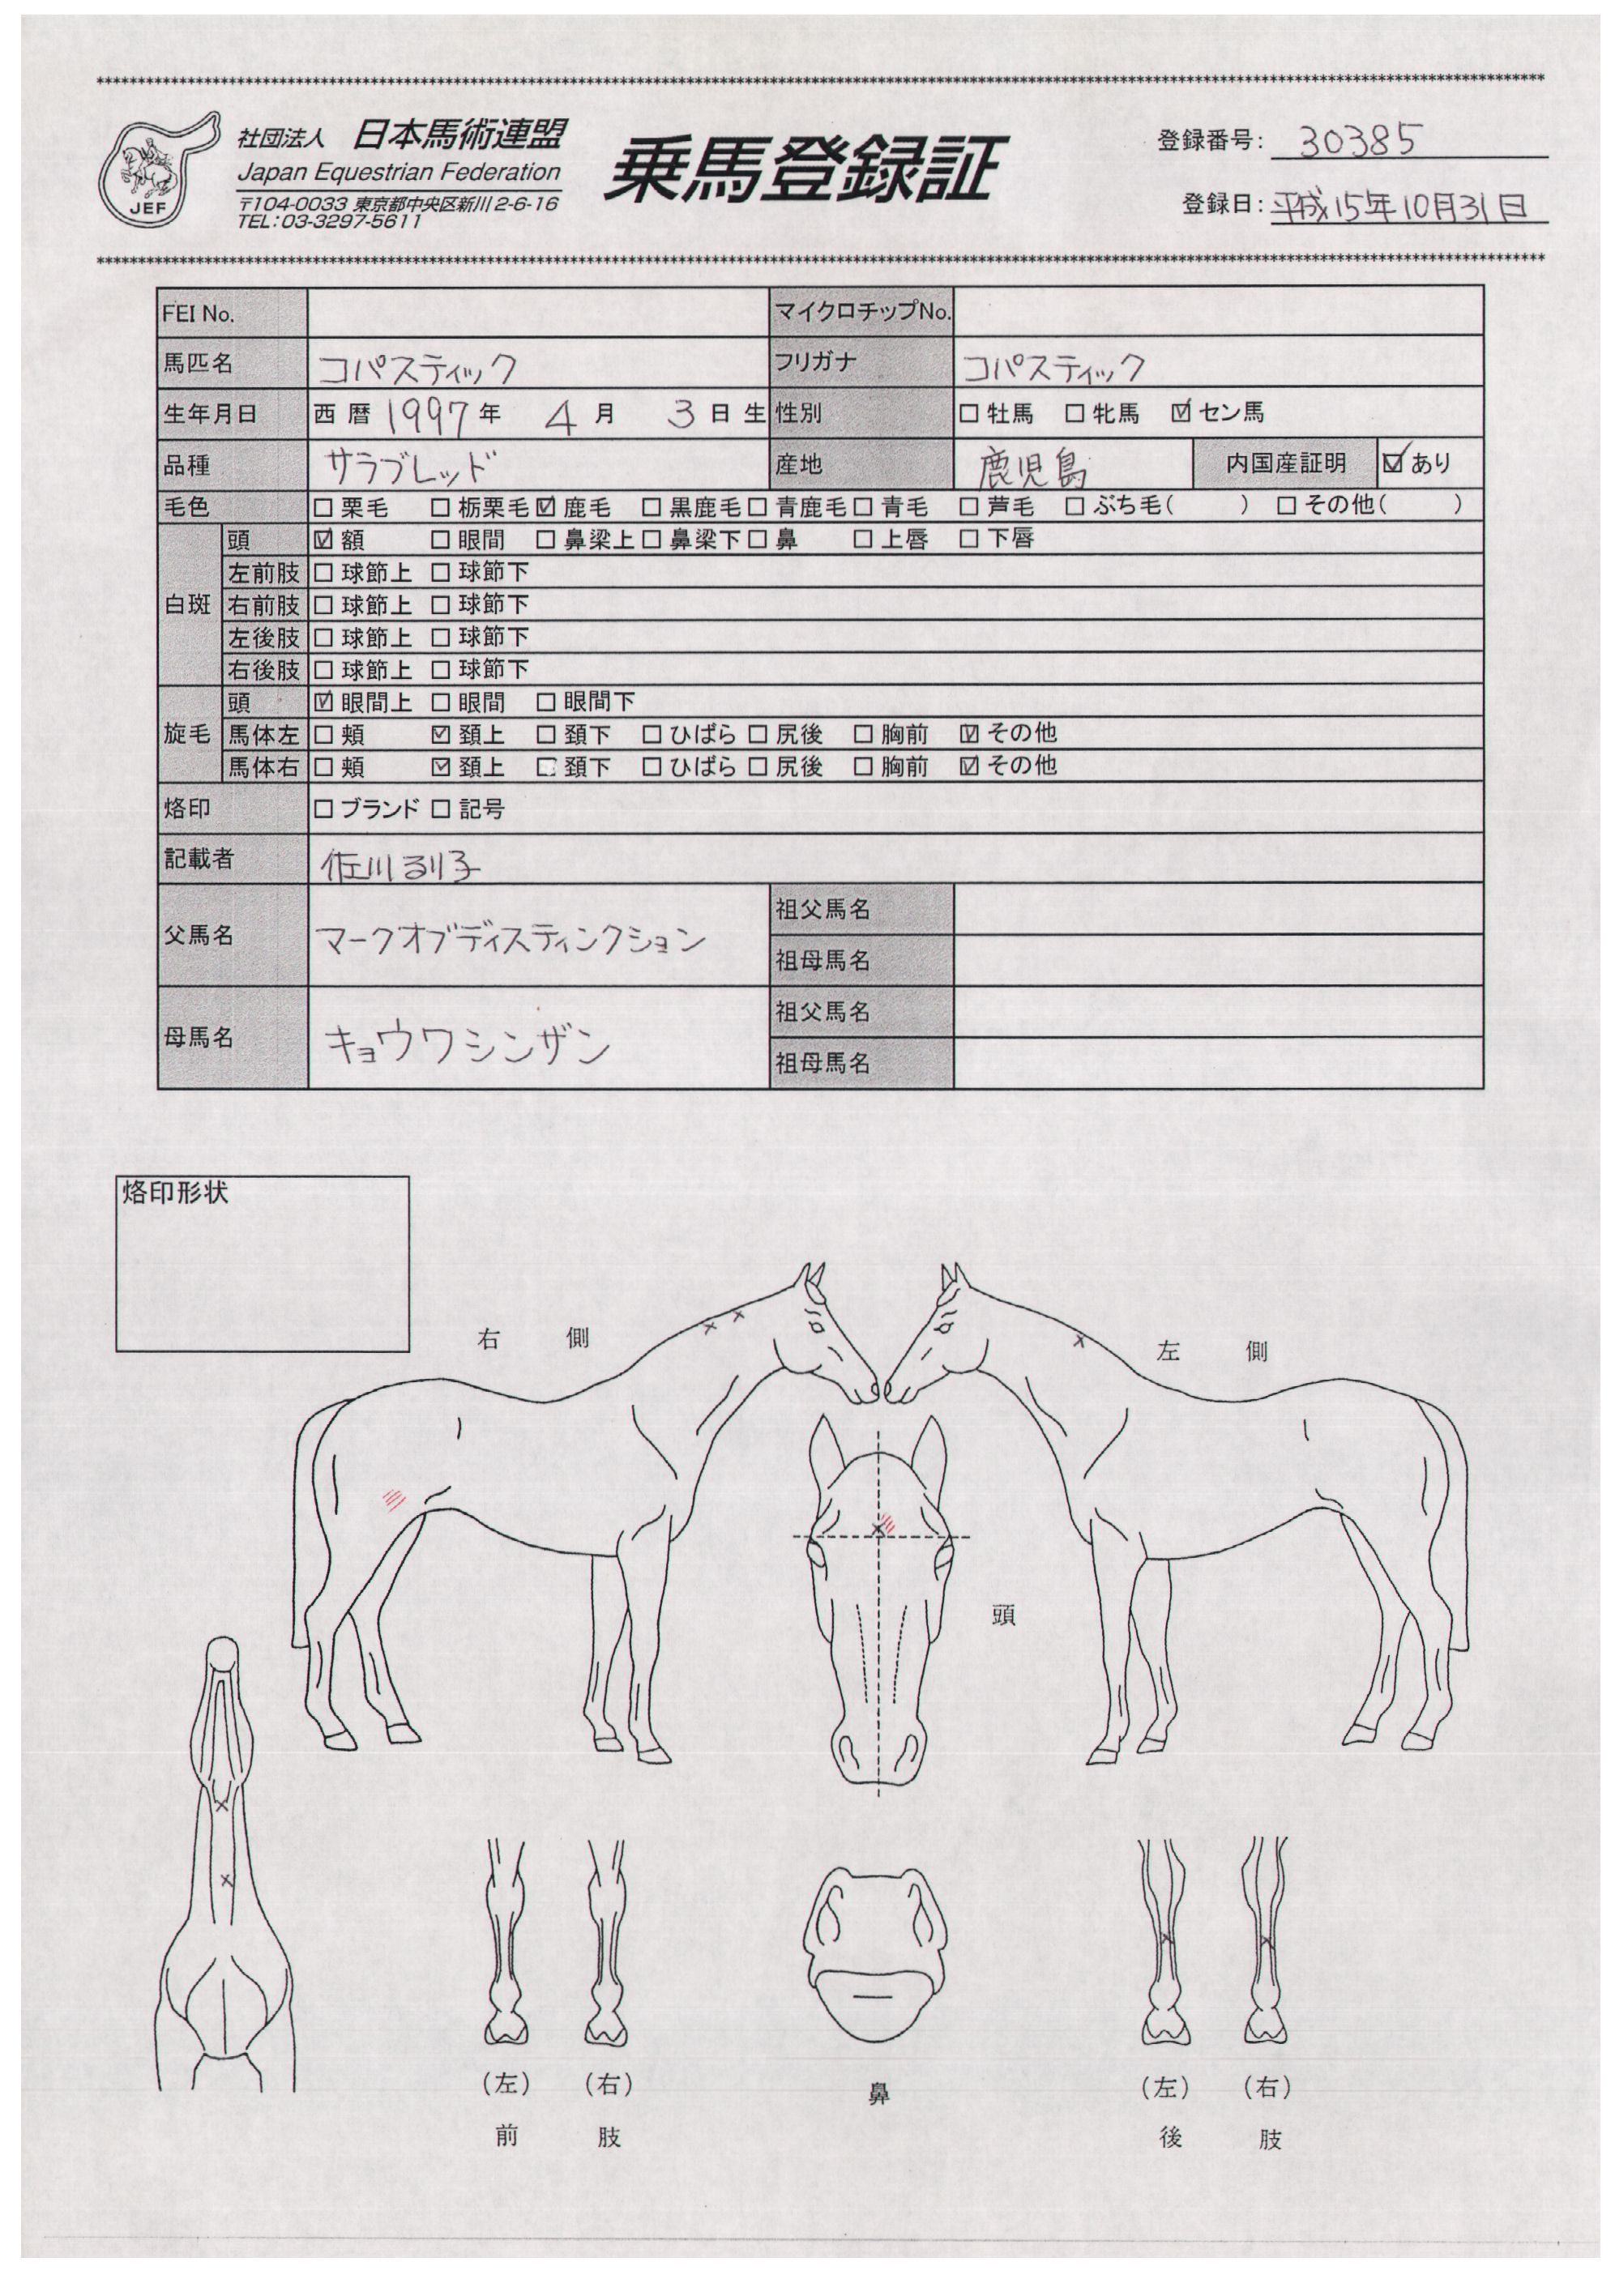 ****************************************************************
JEF
社団法人 日本馬術連盟
Japan Equestrian Federation
〒104-0033 東京都中央区新川2-6-16
TEL:03-3297-5611
乗馬登録証
登録番号: 30385
登録日: 平成15年10月31日
****************************************************************
FEI No. マイクロチップNo.
馬匹名 コパスティック フリガナ コパスティック
生年月日 西暦 1997年 4月 3日生 性別 □ 牡馬 □ 牝馬 ☑ セン馬
品種 サラブレッド 産地 鹿児島 内国産証明 ☑ あり
毛色 □ 栗毛 □ 栃栗毛 ☑ 鹿毛 □ 黒鹿毛 □ 青鹿毛 □ 青毛 □ 芦毛 □ ぶち毛( ) □ その他( )
白斑 頭 ☑ 額 □ 眼間 □ 鼻梁上 □ 鼻梁下 □ 鼻 □ 上唇 □ 下唇
左前肢 □ 球節上 □ 球節下
右前肢 □ 球節上 □ 球節下
左後肢 □ 球節上 □ 球節下
右後肢 □ 球節上 □ 球節下
旋毛 頭 ☑ 眼間上 □ 眼間 □ 眼間下
馬体左 □ 頬 ☑ 頚上 □ 頚下 □ ひばら □ 尻後 □ 胸前 ☑ その他
馬体右 □ 頬 ☑ 頚上 □ 頚下 □ ひばら □ 尻後 □ 胸前 ☑ その他
烙印 □ ブランド □ 記号
記載者 佐川るり子
父馬名 マークオブディスティンクション 祖父馬名
祖母馬名
母馬名 キョウワシンザン 祖父馬名
祖母馬名
烙印形状
右側 左側
頭
(左) (右) (左) (右)
前肢 鼻 後肢